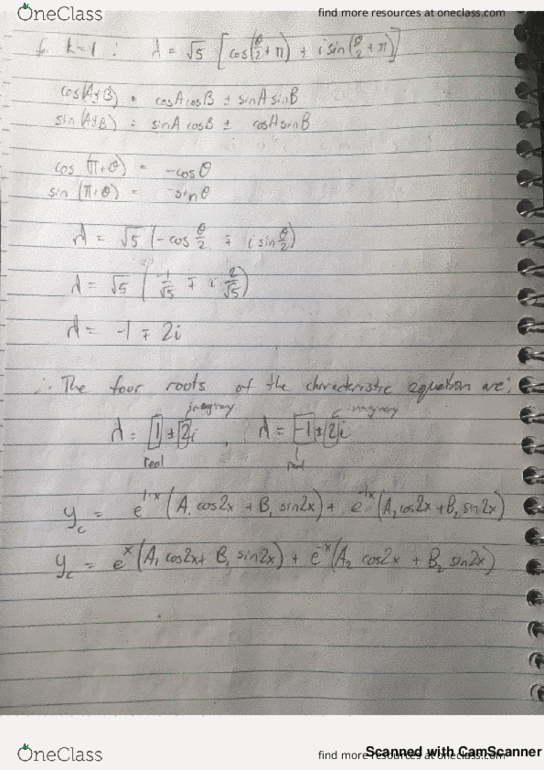 OneClass find more resources at oneclass.com
k=1 : λ = √5 [cos(θ/2+π) ± i sin(θ/2+π)]
cos(A±B) = cosA cosB ± sinA sinB
sin(A±B) = sinA cosB ± cosA sinB
cos (π+θ) = -cosθ
sin (π+θ) = -sinθ
λ = √5 (-cos θ/2 ∓ i sin θ/2)
λ = √5 (-1/√5 ∓ i 2/√5)
λ = -1 ∓ 2i
∴ The four roots of the characteristic equation are:
imaginary imaginary
λ = 1 ± 2i , λ = -1 ± 2i
real real
y_c = e^{1·x} (A₁ cos2x + B₁ sin2x) + e^{-1x} (A₂ cos2x + B₂ sin2x)
y_c = e^x (A₁ cos2x + B₁ sin2x) + e^{-x} (A₂ cos2x + B₂ sin2x)
OneClass find more resources at oneclass.com
Scanned with CamScanner